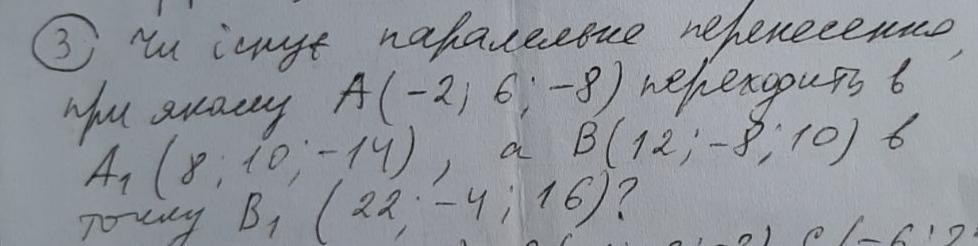 ③ Чи існує паралельне перенесення,
при якому A(-2; 6; -8) переходить в
A₁ (8; 10; -14), а B(12; -8; 10) в
точку B₁ (22; -4; 16)?